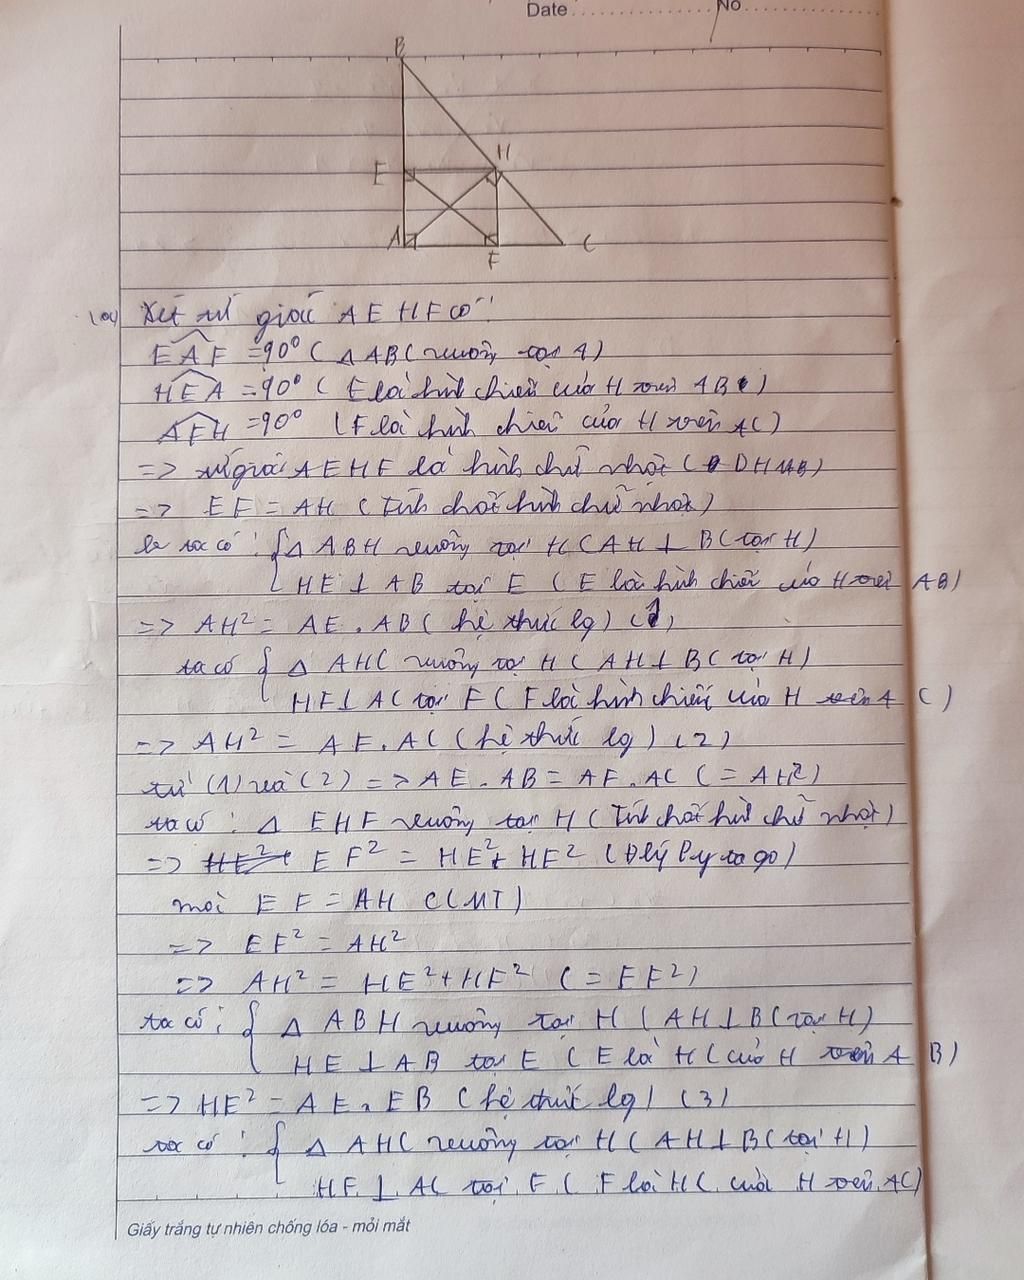 Date No
B
E H
A F C
a) Xét tứ giác AEHF có:
EAF = 90° (Δ ABC vuông tại A)
HEA = 90° (E là hình chiếu của H trên AB)
AFH = 90° (F là hình chiếu của H trên AC)
=> tứ giác AEHF là hình chữ nhật (DHNB)
=> EF = AH (Tính chất hình chữ nhật)
b, ta có: { Δ ABH vuông tại H (AH ⊥ BC tại H)
HE ⊥ AB tại E (E là hình chiếu của H trên AB)
=> AH² = AE . AB (hệ thức lg) (1)
ta có { Δ AHC vuông tại H (AH ⊥ BC tại H)
HF ⊥ AC tại F (F là hình chiếu của H trên AC)
=> AH² = AF . AC (hệ thức lg) (2)
từ (1) và (2) => AE . AB = AF . AC (= AH²)
ta có: Δ EHF vuông tại H (Tính chất hình chữ nhật)
=> EF² = HE² + HF² (Đlý Pytago)
mà EF = AH (CMT)
=> EF² = AH²
=> AH² = HE² + HF² (= EF²)
ta có: { Δ ABH vuông tại H (AH ⊥ BC tại H)
HE ⊥ AB tại E (E là HC của H trên AB)
=> HE² = AE . EB (hệ thức lg) (3)
ta có: { Δ AHC vuông tại H (AH ⊥ BC tại H)
HF ⊥ AC tại F (F là HC của H trên AC)
Giấy trắng tự nhiên chống lóa - mỏi mắt